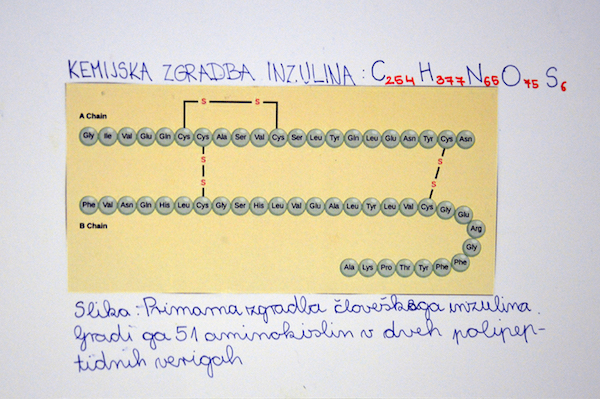 KEMIJSKA ZGRADBA INZULINA : C254 H377 N65 O75 S6
S S
A Chain
Gly Ile Val Glu Gln Cys Cys Ala Ser Val Cys Ser Leu Tyr Gln Leu Glu Asn Tyr Cys Asn
S S
S S
Phe Val Asn Gln His Leu Cys Gly Ser His Leu Val Glu Ala Leu Tyr Leu Val Cys Gly Glu
B Chain
Arg
Gly
Ala Lys Pro Thr Tyr Phe Phe
Slika : Primarna zgradba človeškega inzulina.
Gradi ga 51 aminokislin v dveh polipep-
tidnih verigah